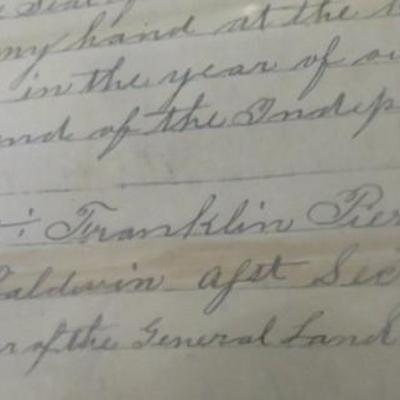 my hand at the
in the year of
and of the Indep
: Franklin Pier
Baldwin Asst Sec
r of the General Land